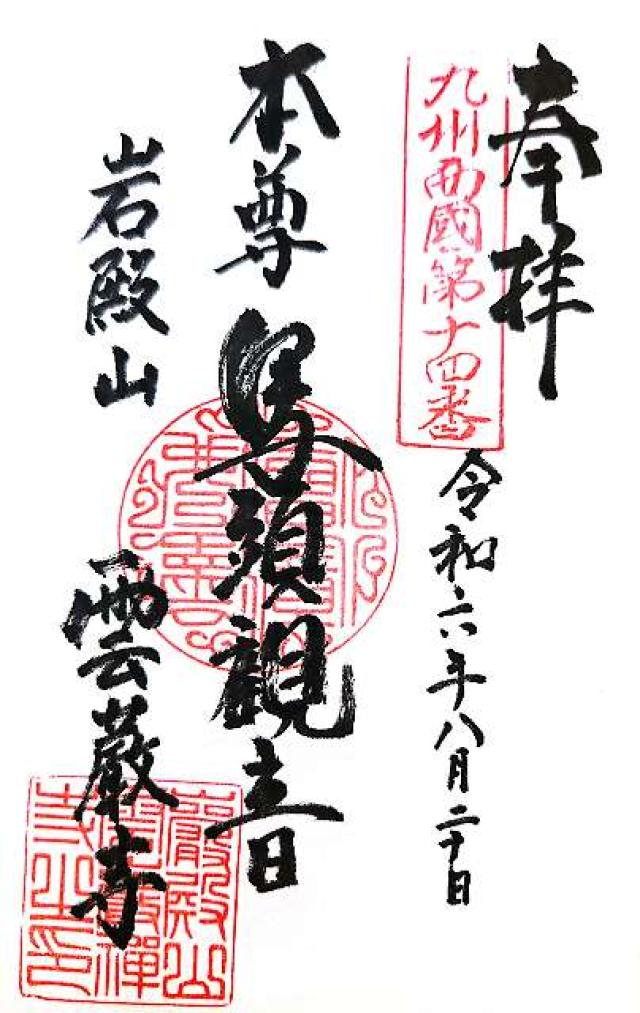 奉拝
九州西國第十四番
令和六年八月二十日
本尊 馬頭観音
岩殿山
雲巌寺